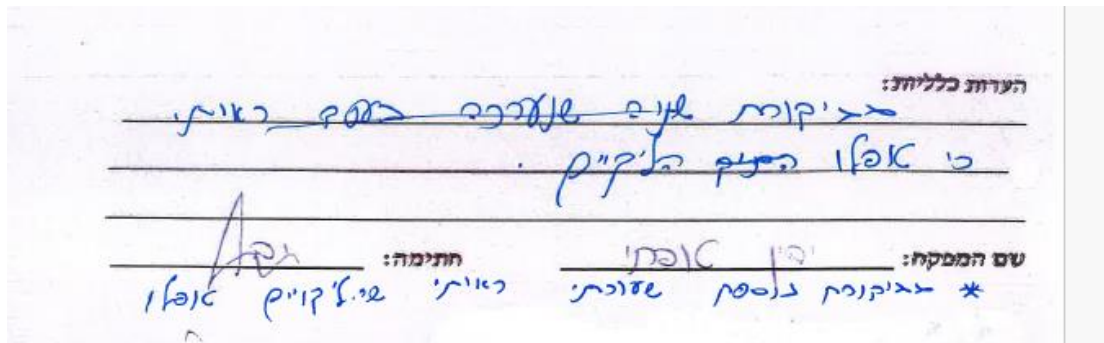 הערות כלליות:
בביקורת שניה שנערכה בעסק ראיתי
כי טופלו הליקויים.
שם המפקח: חתימה:
* בביקורת נוספת שערכתי ראיתי שהליקויים טופלו